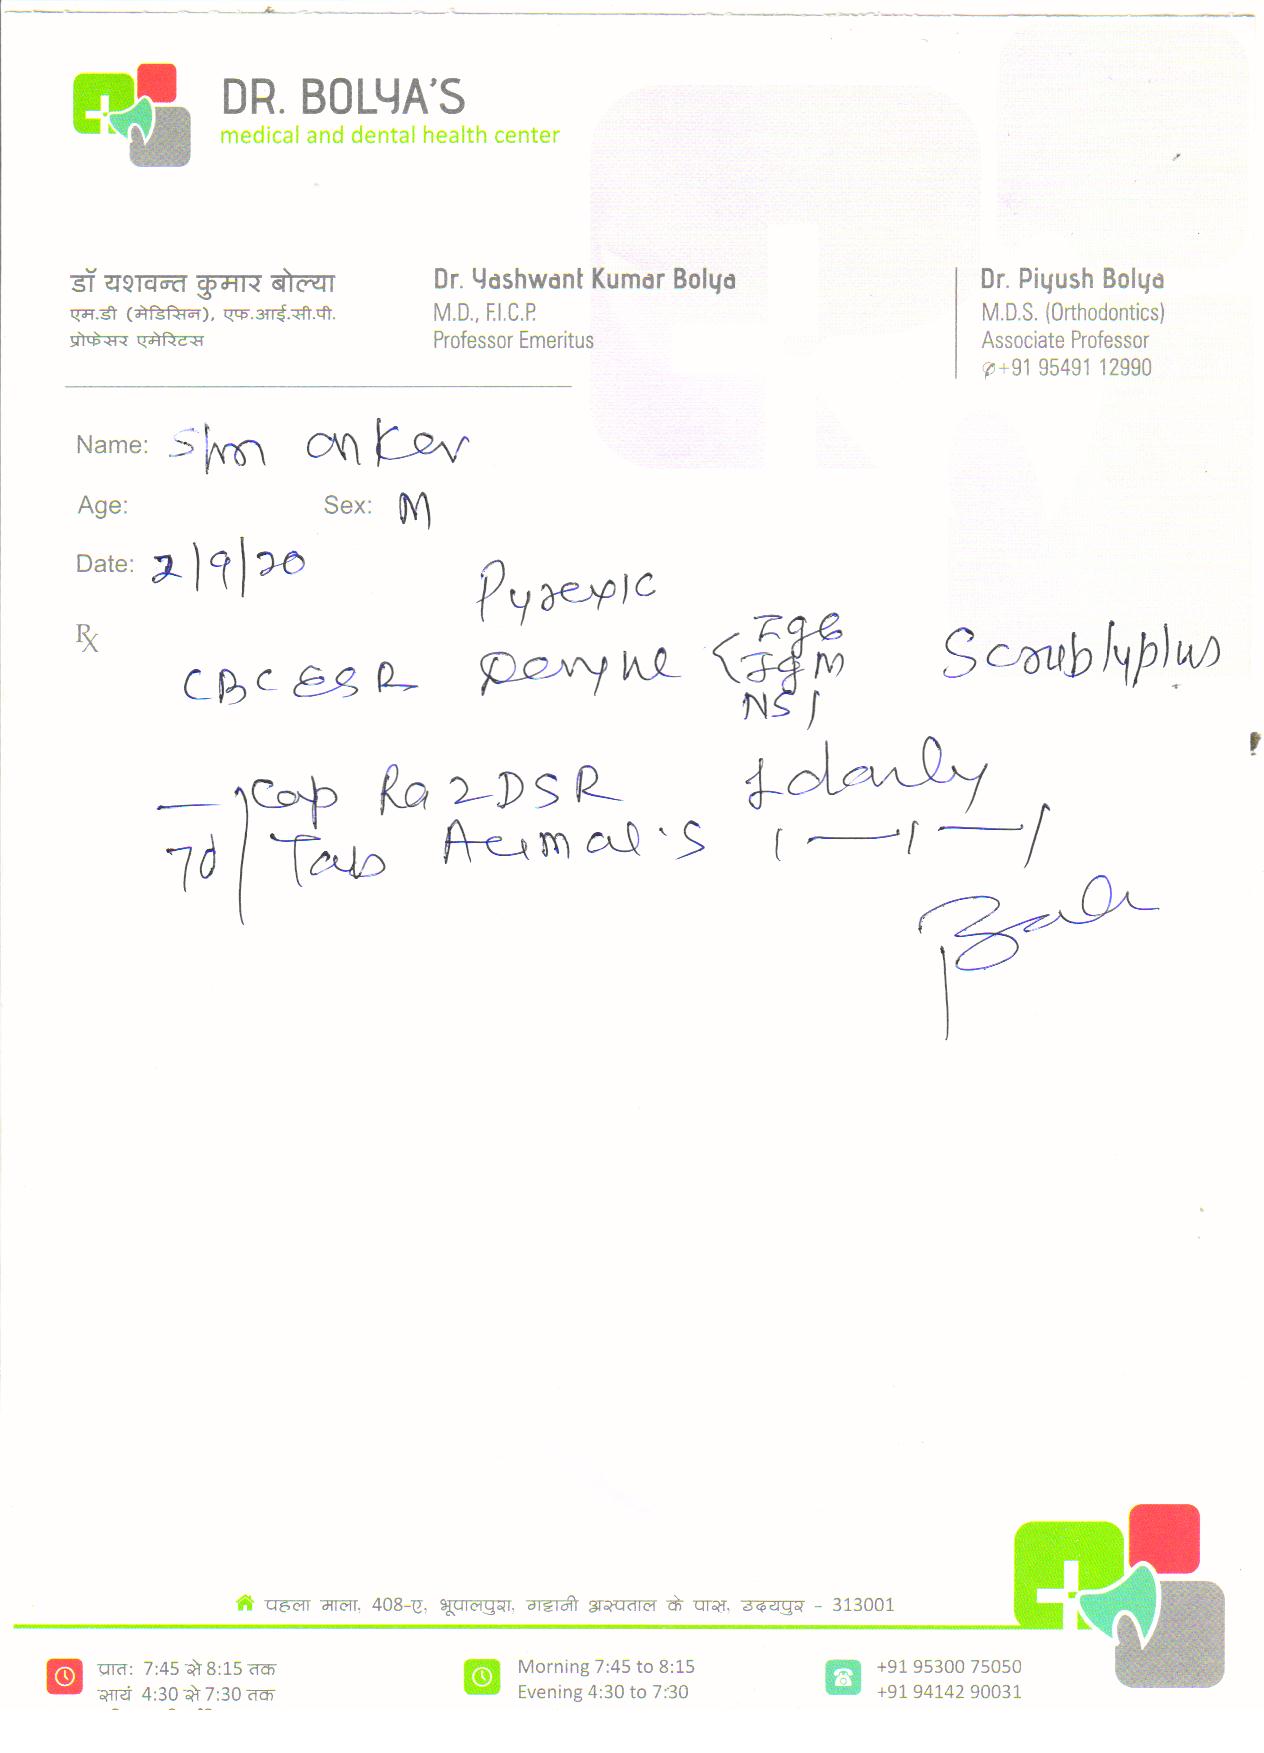 DR. BOLYA'S
medical and dental health center
डॉ यशवन्त कुमार बोल्या
एम.डी (मेडिसिन), एफ.आई.सी.पी.
प्रोफेसर एमेरिटस
Dr. Yashwant Kumar Bolya
M.D., F.I.C.P.
Professor Emeritus
Dr. Piyush Bolya
M.D.S. (Orthodontics)
Associate Professor
✆+91 95491 12990
Name: onker
Age: Sex: M
Date: 2/9/20
Pyrexic
Rx
CBC ESR < IgG IgM NS1
7d
Cap Raz DSR 1 daily
Tab 1—1—1
पहला माला, 408-ए, भूपालपुरा, गट्टानी अस्पताल के पास, उदयपुर - 313001
प्रातः 7:45 से 8:15 तक
सायं 4:30 से 7:30 तक
Morning 7:45 to 8:15
Evening 4:30 to 7:30
+91 95300 75050
+91 94142 90031